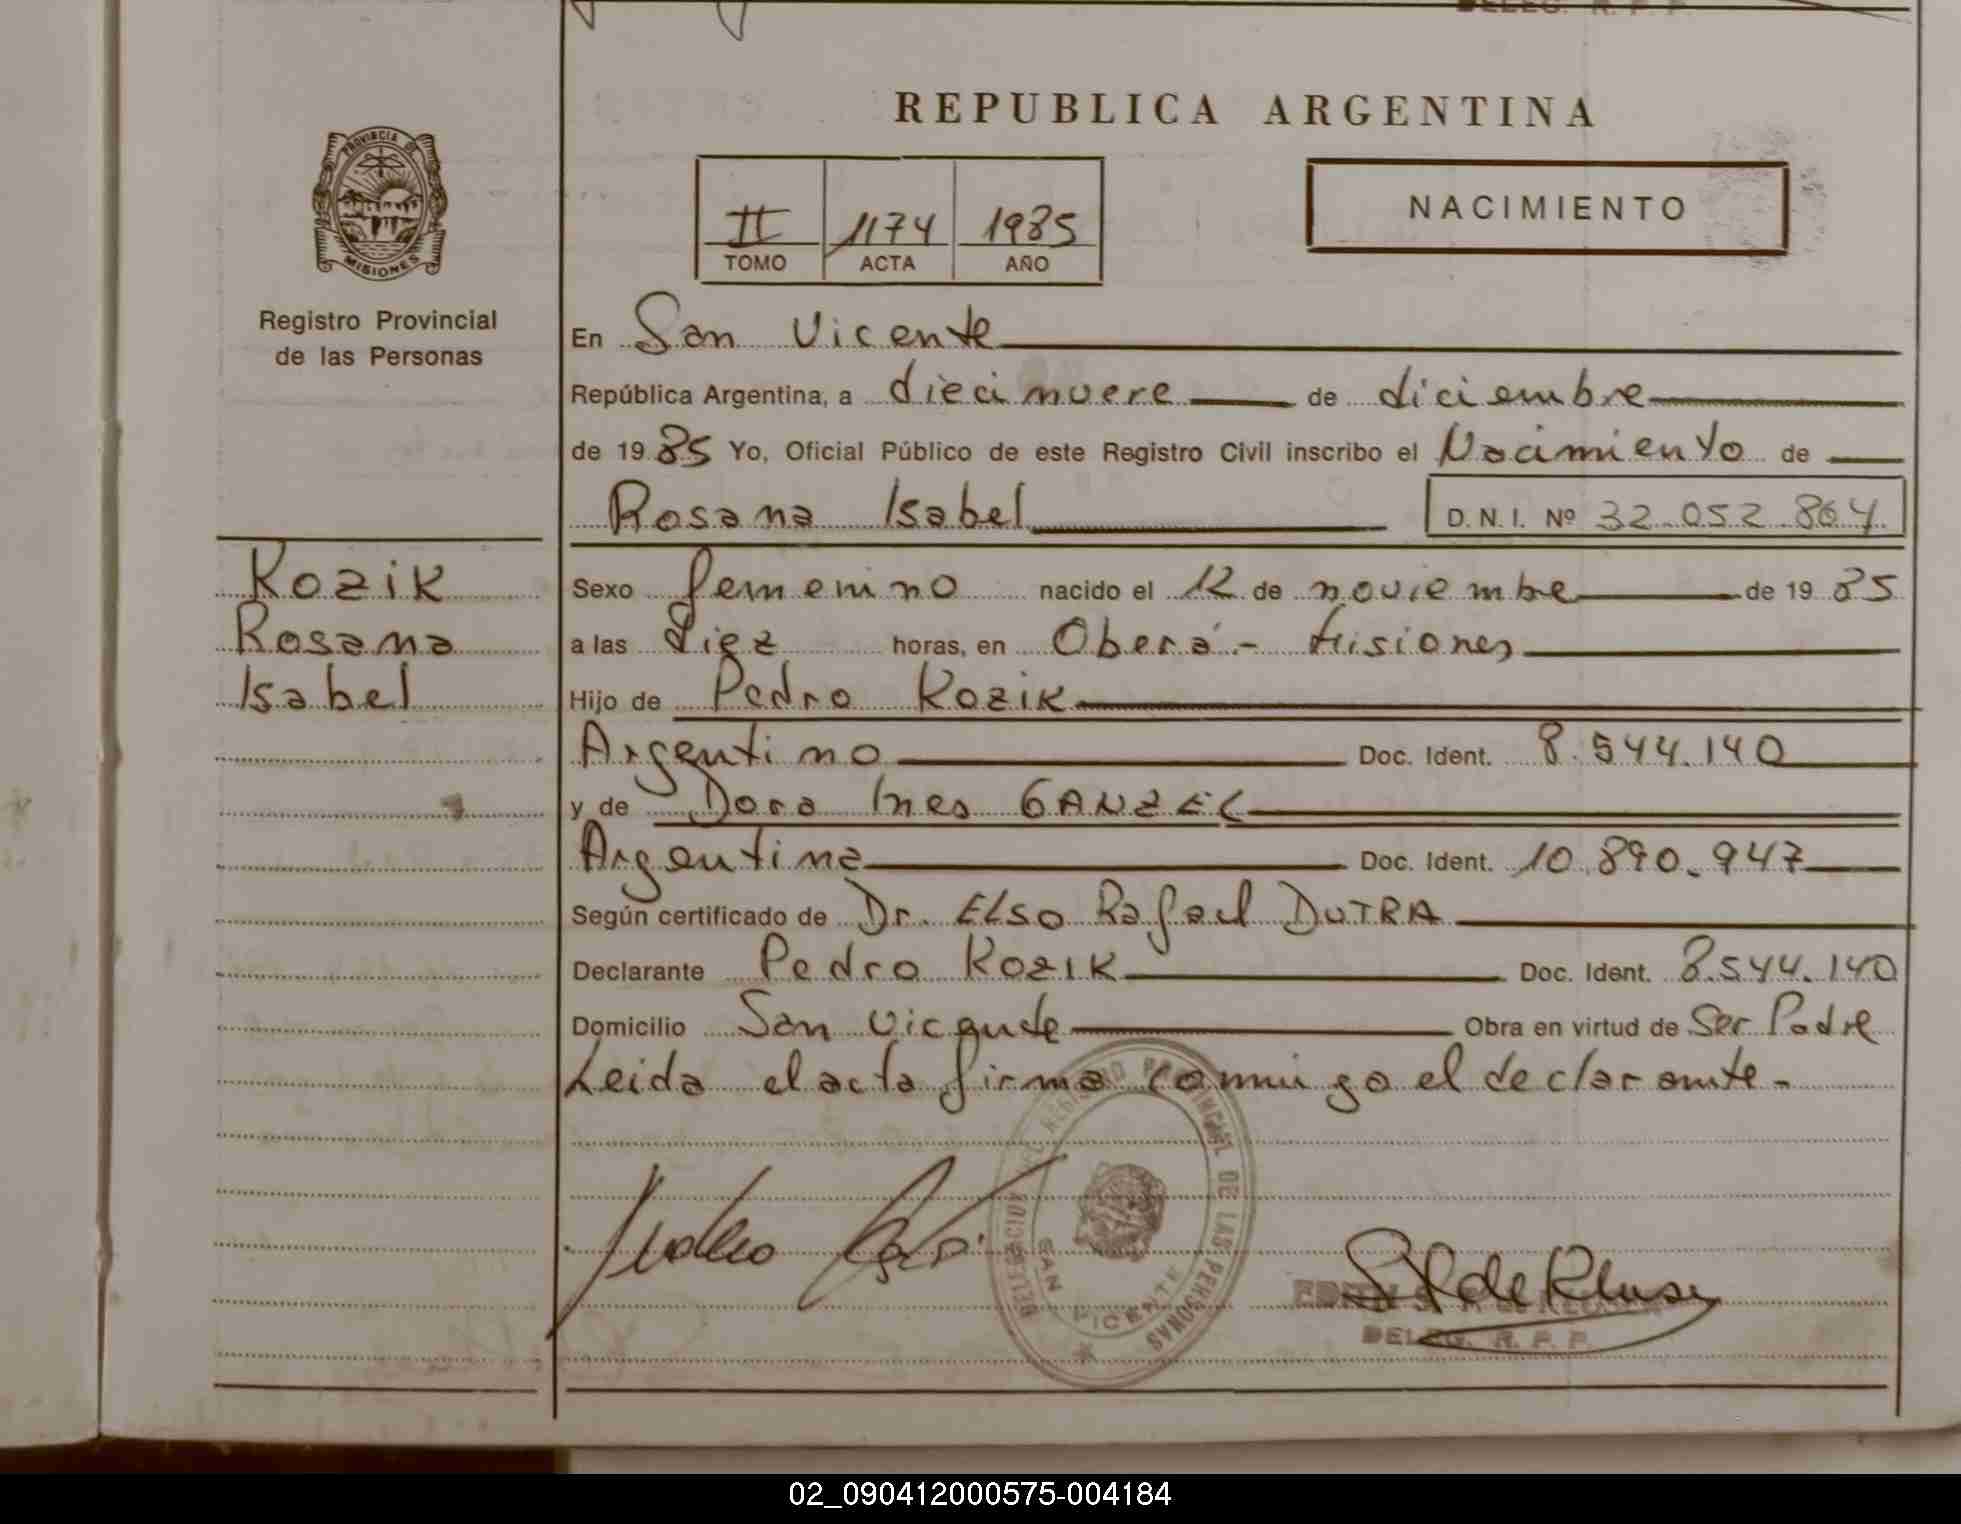 DELEG. R. P. P.
REPUBLICA ARGENTINA
PROVINCIA DE
MISIONES
Registro Provincial
de las Personas
II 1174 1985
TOMO ACTA AÑO
NACIMIENTO
En San Vicente
República Argentina, a diecinueve de diciembre
de 19 85 Yo, Oficial Público de este Registro Civil inscribo el Nacimiento de
Rosana Isabel D.N.I. Nº 32.052.864
Kozik
Rosana
Isabel
Sexo femenino nacido el 12 de noviembre de 19 85
a las Diez horas, en Oberá - Misiones
Hijo de Pedro Kozik
Argentino Doc. Ident. 8.544.140
y de Dora Ines GANZEL
Argentina Doc. Ident. 10.890.947
Según certificado de Dr. ELSO Rafael DUTRA
Declarante Pedro KOZIK Doc. Ident. 8.544.140
Domicilio San Vicente Obra en virtud de Ser Padre
Leida el acta firma conmigo el declarante.-
DELEGACION DEL REGISTRO PROVINCIAL DE LAS PERSONAS
SAN VICENTE
DELEG. R. P. P.
02_090412000575-004184